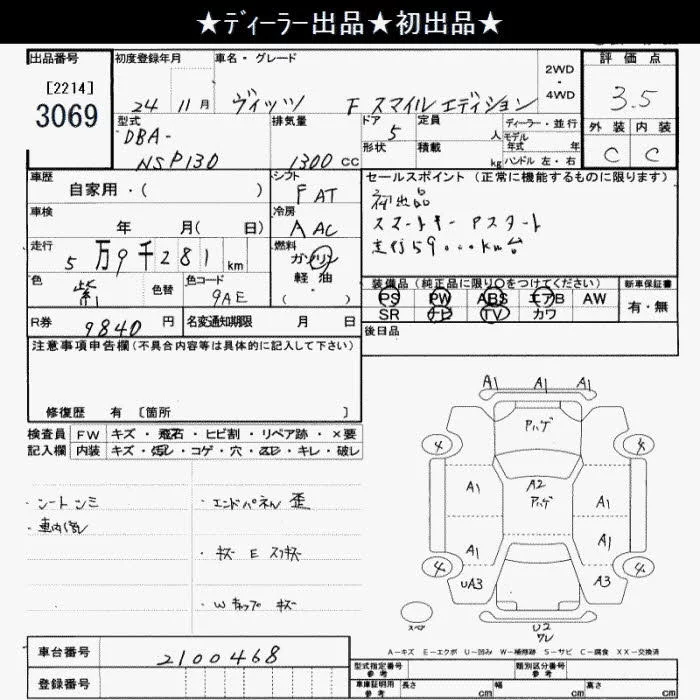 ★ﾃﾞｨｰﾗｰ出品★初出品★
出品番号
[2214]
3069
初度登録年月
24 11月
車名・グレード
ヴィッツ F スマイルエディション
2WD
・
4WD
評価点
3.5
外装 内装
C C
型式
DBA-
NSP130
排気量
1300 CC
ドア
5
定員
人
形状
積載
kg
ディーラー・並行
モデル
年式 年
ハンドル 左・右
車歴
自家用・( )
シフト
F AT
セールスポイント (正常に機能するものに限ります)
初出品
スマートキー Pスタート
走行59000km台
車検
年 月( 日)
冷房
A AC
走行
5万9千281km
燃料
ガソリン
軽油
( )
色
紫
色替
色コード
9AE
装備品(純正品に限り○をつけてください)
PS PW ABS エアB AW
SR ナビ TV カワ
新車保証書
有・無
R券
9840 円
名変通知期限 月 日
後日品
注意事項申告欄(不具合内容等は具体的に記入して下さい)
修復歴 有 [箇所 ]
検査員
記入欄
FW キズ・飛石・ヒビ割・リペア跡・×要
内装 キズ・汚レ・コゲ・穴・スレ・キレ・破レ
・シートシミ
・車内汚レ
・エンドパネル歪
・キズ E スリキズ
・Wキャップ キズ
A1 A1 A1
Pハゲ
4 4
A2
Pハゲ
A1 A1
A1 A1
4 4
UA3 A3
スペア
U2
ワレ
A－キズ E－エクボ U－凹み W－補修跡 S－サビ C－腐食 XX－交換済
車台番号
2100468
登録番号
型式指定番号
参考
類別区分番号
参考
車庫証明用
参考
長さ cm
幅 cm
高さ cm